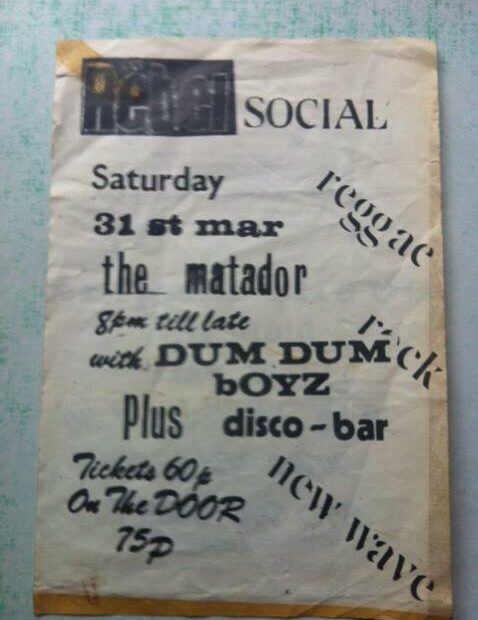 Rebel SOCIAL
Saturday
reggae
31 st mar
the matador
8pm till late
rock
with DUM DUM
bOYZ
Plus disco-bar
new wave
Tickets 60p
On The DOOR
75p